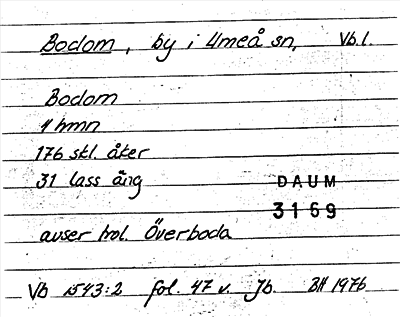 Bodom, by i Umeå sn, Vb.l.
Bodom
1 hmn
176 skl. åker
31 lass äng
DAUM
3169
avser trol. Överboda
Vb 1543:2 fol. 47 v. Jb. BH 1976